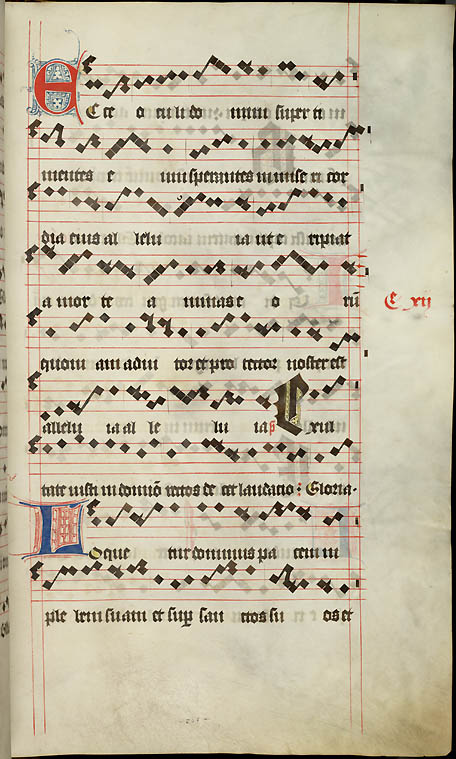 E Cce o culi do mini super ti
mentes e um sperantes in mise ri cor
dia eius al lelu ia ut e ripiat
a mor te a nimas e o rū
C xij
quoni am adiu tor et pro tector noster est
allelu ia al le lu ia ps E xul
tate iusti in dominō rectos de cet laudacio : Gloria.
L oque tur dominus pa cem in
ple bem suam et sup san ctos su os et